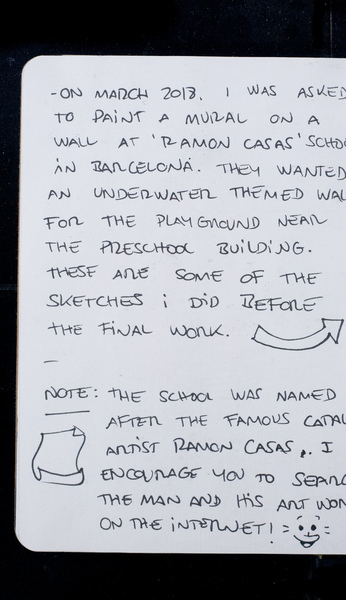 -ON MARCH 2018, I WAS ASKED
TO PAINT A MURAL ON A
WALL AT 'RAMON CASAS' SCHOO
IN BARCELONA. THEY WANTED
AN UNDERWATER THEMED WAL
FOR THE PLAYGROUND NEAR
THE PRESCHOOL BUILDING.
THESE ARE SOME OF THE
SKETCHES I DID BEFORE
THE FINAL WORK.
NOTE: THE SCHOOL WAS NAMED
AFTER THE FAMOUS CATAL
ARTIST RAMON CASAS. I
ENCOURAGE YOU TO SEARC
THE MAN AND HIS ART WOR
ON THE INTERNET!